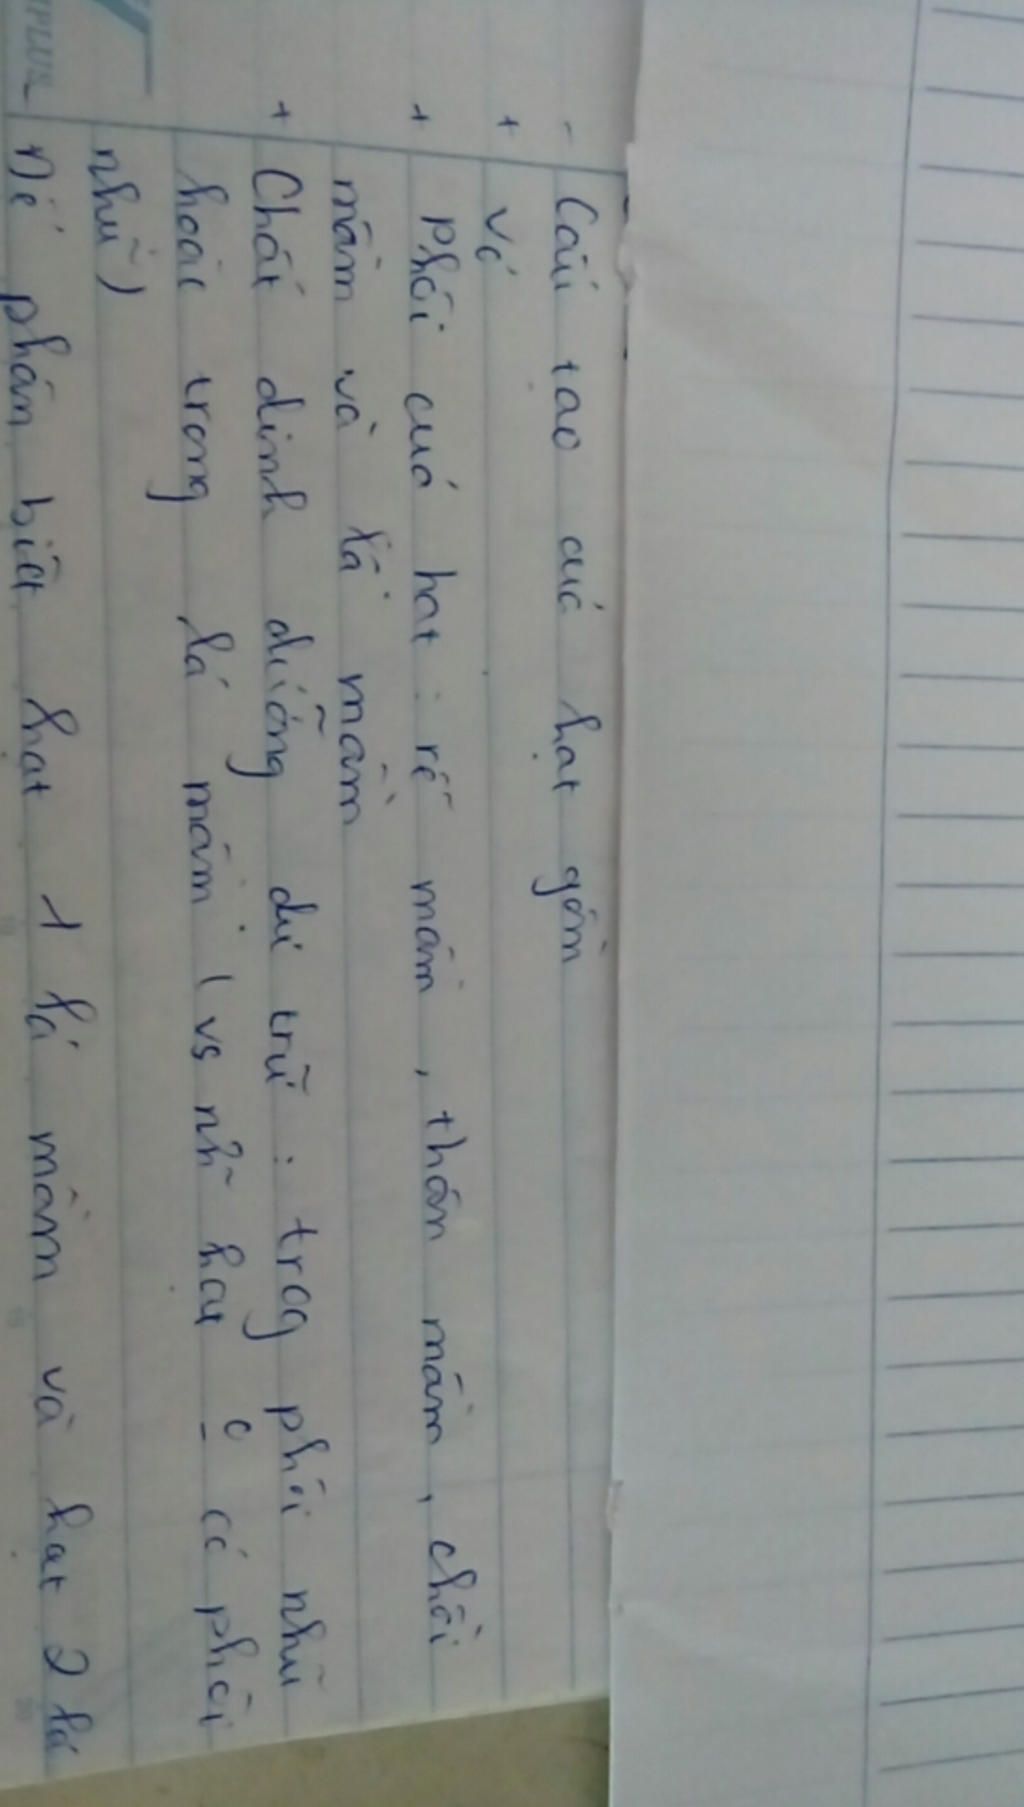 - Cấu tạo củả hạt gồm
+ Vỏ
+ Phôi củả hạt : rễ mầm , thân mầm , chồi
mầm và lá mầm
+ Chất dinh dưỡng dự trữ : trog phôi nhũ
hoặc trong lá mầm ( vs nh~ hạt c̠ có phôi
nhũ )
Để phân biệt hạt 1 lá mầm và hạt 2 lá